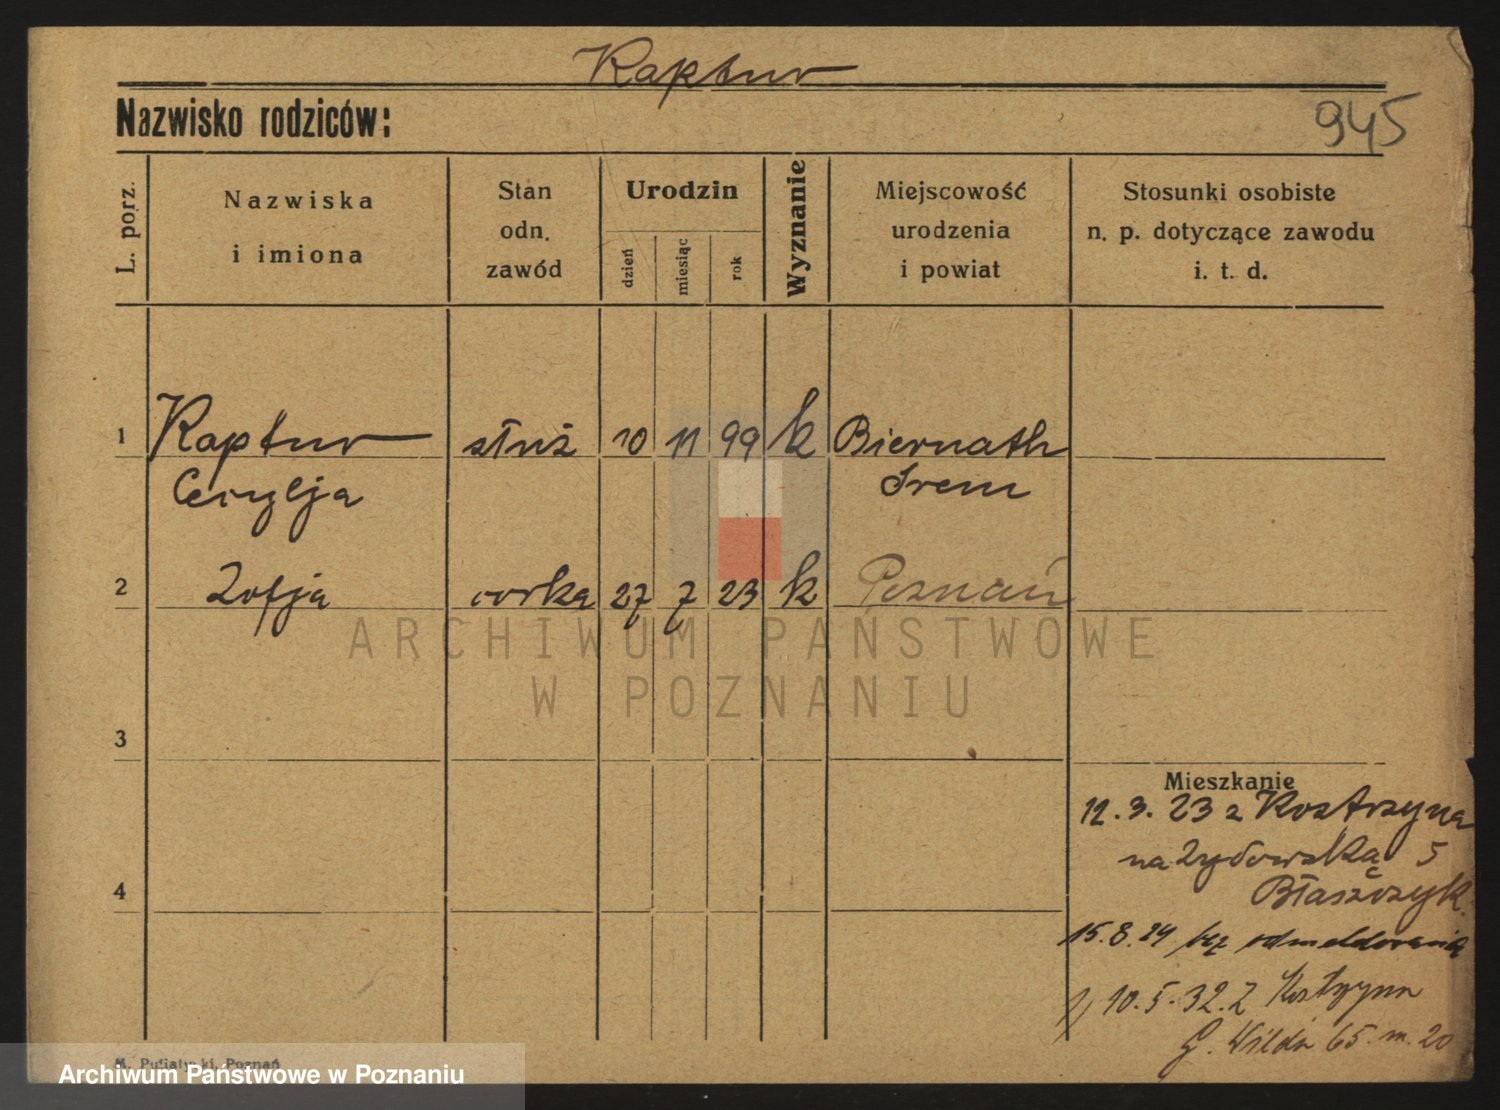 Kaptur
Nazwisko rodziców:
945
L. porz.
Nazwiska
i imiona
Stan
odn.
zawód
Urodzin
dzień
miesiąc
rok
Wyznanie
Miejscowość
urodzenia
i powiat
Stosunki osobiste
n. p. dotyczące zawodu
i. t. d.
1 Kaptur służ 10 11 99 k Biernath
Cecylja Srem
2 Zofja corka 27 7 23 k Poznań
ARCHIWUM PAŃSTWOWE
W POZNANIU
3
Mieszkanie
12.3.23 z Kostrzyna
na Zydowską 5
4
Błaszczyk.
15.8.24 bez odmeldowania
1) 10.5.32. z Kostrzyna
G. Wilda 65 m. 20
Poznań
Archiwum Państwowe w Poznaniu